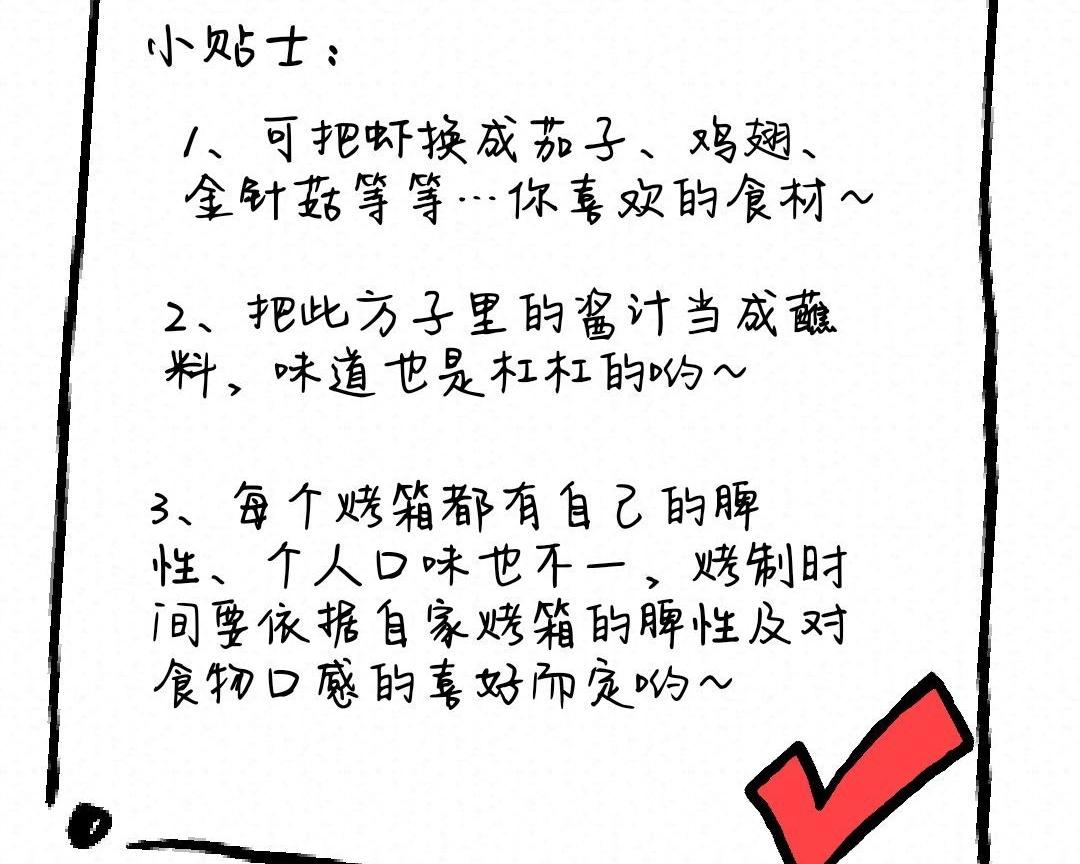 小贴士：
1、可把虾换成茄子、鸡翅、
金针菇等等…你喜欢的食材～
2、把此方子里的酱汁当成蘸
料，味道也是杠杠的哟～
3、每个烤箱都有自己的脾
性、个人口味也不一，烤制时
间要依据自家烤箱的脾性及对
食物口感的喜好而定哟～